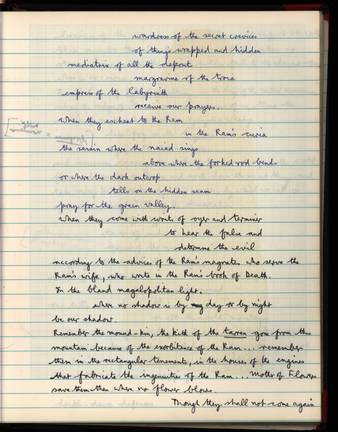 wardress of the secret crevices
of things wrapped and hidden
mediatrix of all the deposits
margravine of the troia
empress of the labyrinth
receive our prayers.
When they escheat to the Ram
in the Ram's curia
the seisin where the naiad sings
above where the forked rod bends
or where the dark outcrop
tells on the hidden seam
pray for the green valley.
When they come with writs of oyer and terminer
to hear the false and
determine the evil
according to the advices of the Ram's magnates who serve the
Ram's wife, who write in the Ram's book of Death.
In the bland megalopolitan light,
where no shadow is by day or by night
be our shadow.
Remember the mound-kin, the kith of the tarren gone from this
mountain because of the exorbitance of the Ram... remember
them in the rectangular tenements, in the houses of the engines
that fabricate the ingenuities of the Ram... Mother of Flowers
save them then where no flower blows.
Though they shall not come again